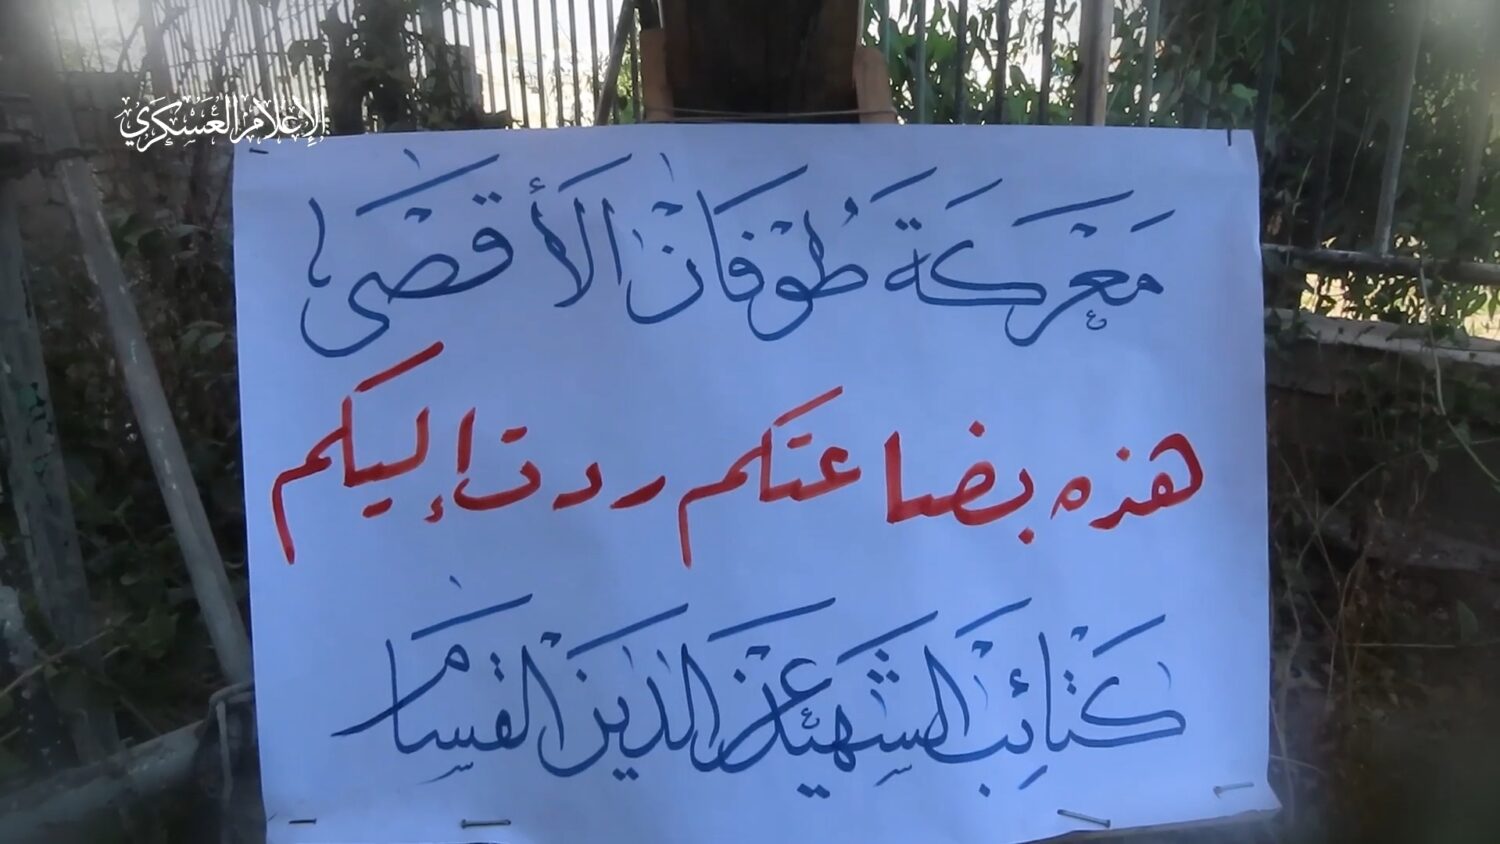 الإعلام العسكري
معركة طوفان الأقصى
هذه بضاعتكم ردت إليكم
كتائب الشهيد عز الدين القسام